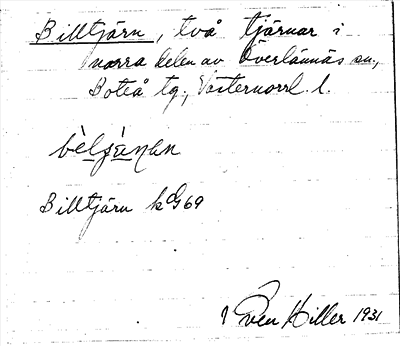 Billtjärn, två tjärnar i
norra delen av Överlännäs sn.,
Boteå tg., Västernorrl. l.
Billtjärn kG69
Sven Hiller 1931